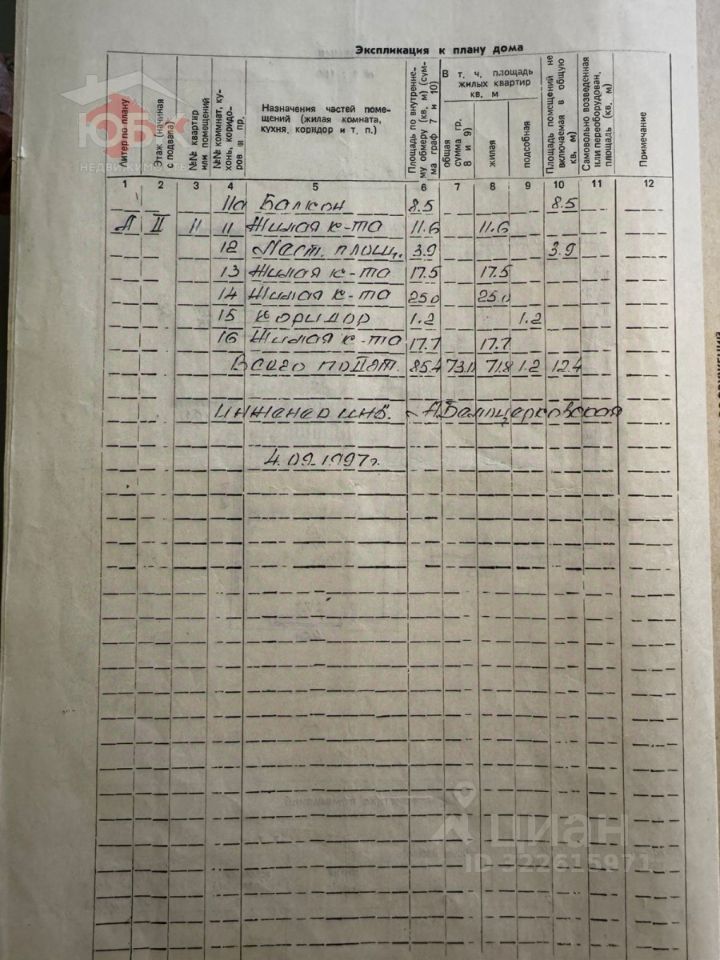 Экспликация к плану дома
Литер по плану
Этаж (начиная с подвала)
№№ квартир или помещений
№№ комннат, кухонь, коридоров и пр.
Назначения частей помещений (жилая комната, кухня, коридор и т. п.)
Площадь по внутреннему обмеру (кв, м) (сумма граф 7 и 10)
В т. ч, площадь жилых квартир кв, м
общая сумма гр. 8 и 9)
жилая
подсобная
Площадь помещений не включаемая в общую кв, м)
Самовольно возведенная или переоборудован, площадь (кв, м)
Примечание
1 2 3 4 5 6 7 8 9 10 11 12
11а Балкон 8.5 8.5
А II 11 11 Жилая к-та 11.6 11.6
12 Лест. площ. 3.9 3.9
13 Жилая к-та 17.5 17.5
14 Жилая к-та 25.0 25.0
15 Коридор 1.2 1.2
16 Жилая к-та 17.7 17.7
Всего по II эт. 85.4 73.0 71.8 1.2 12.4
инженер инв. А.Белоцерковская
4.09.1997г.
НЕДВИЖИМ
циан
ID 322615971